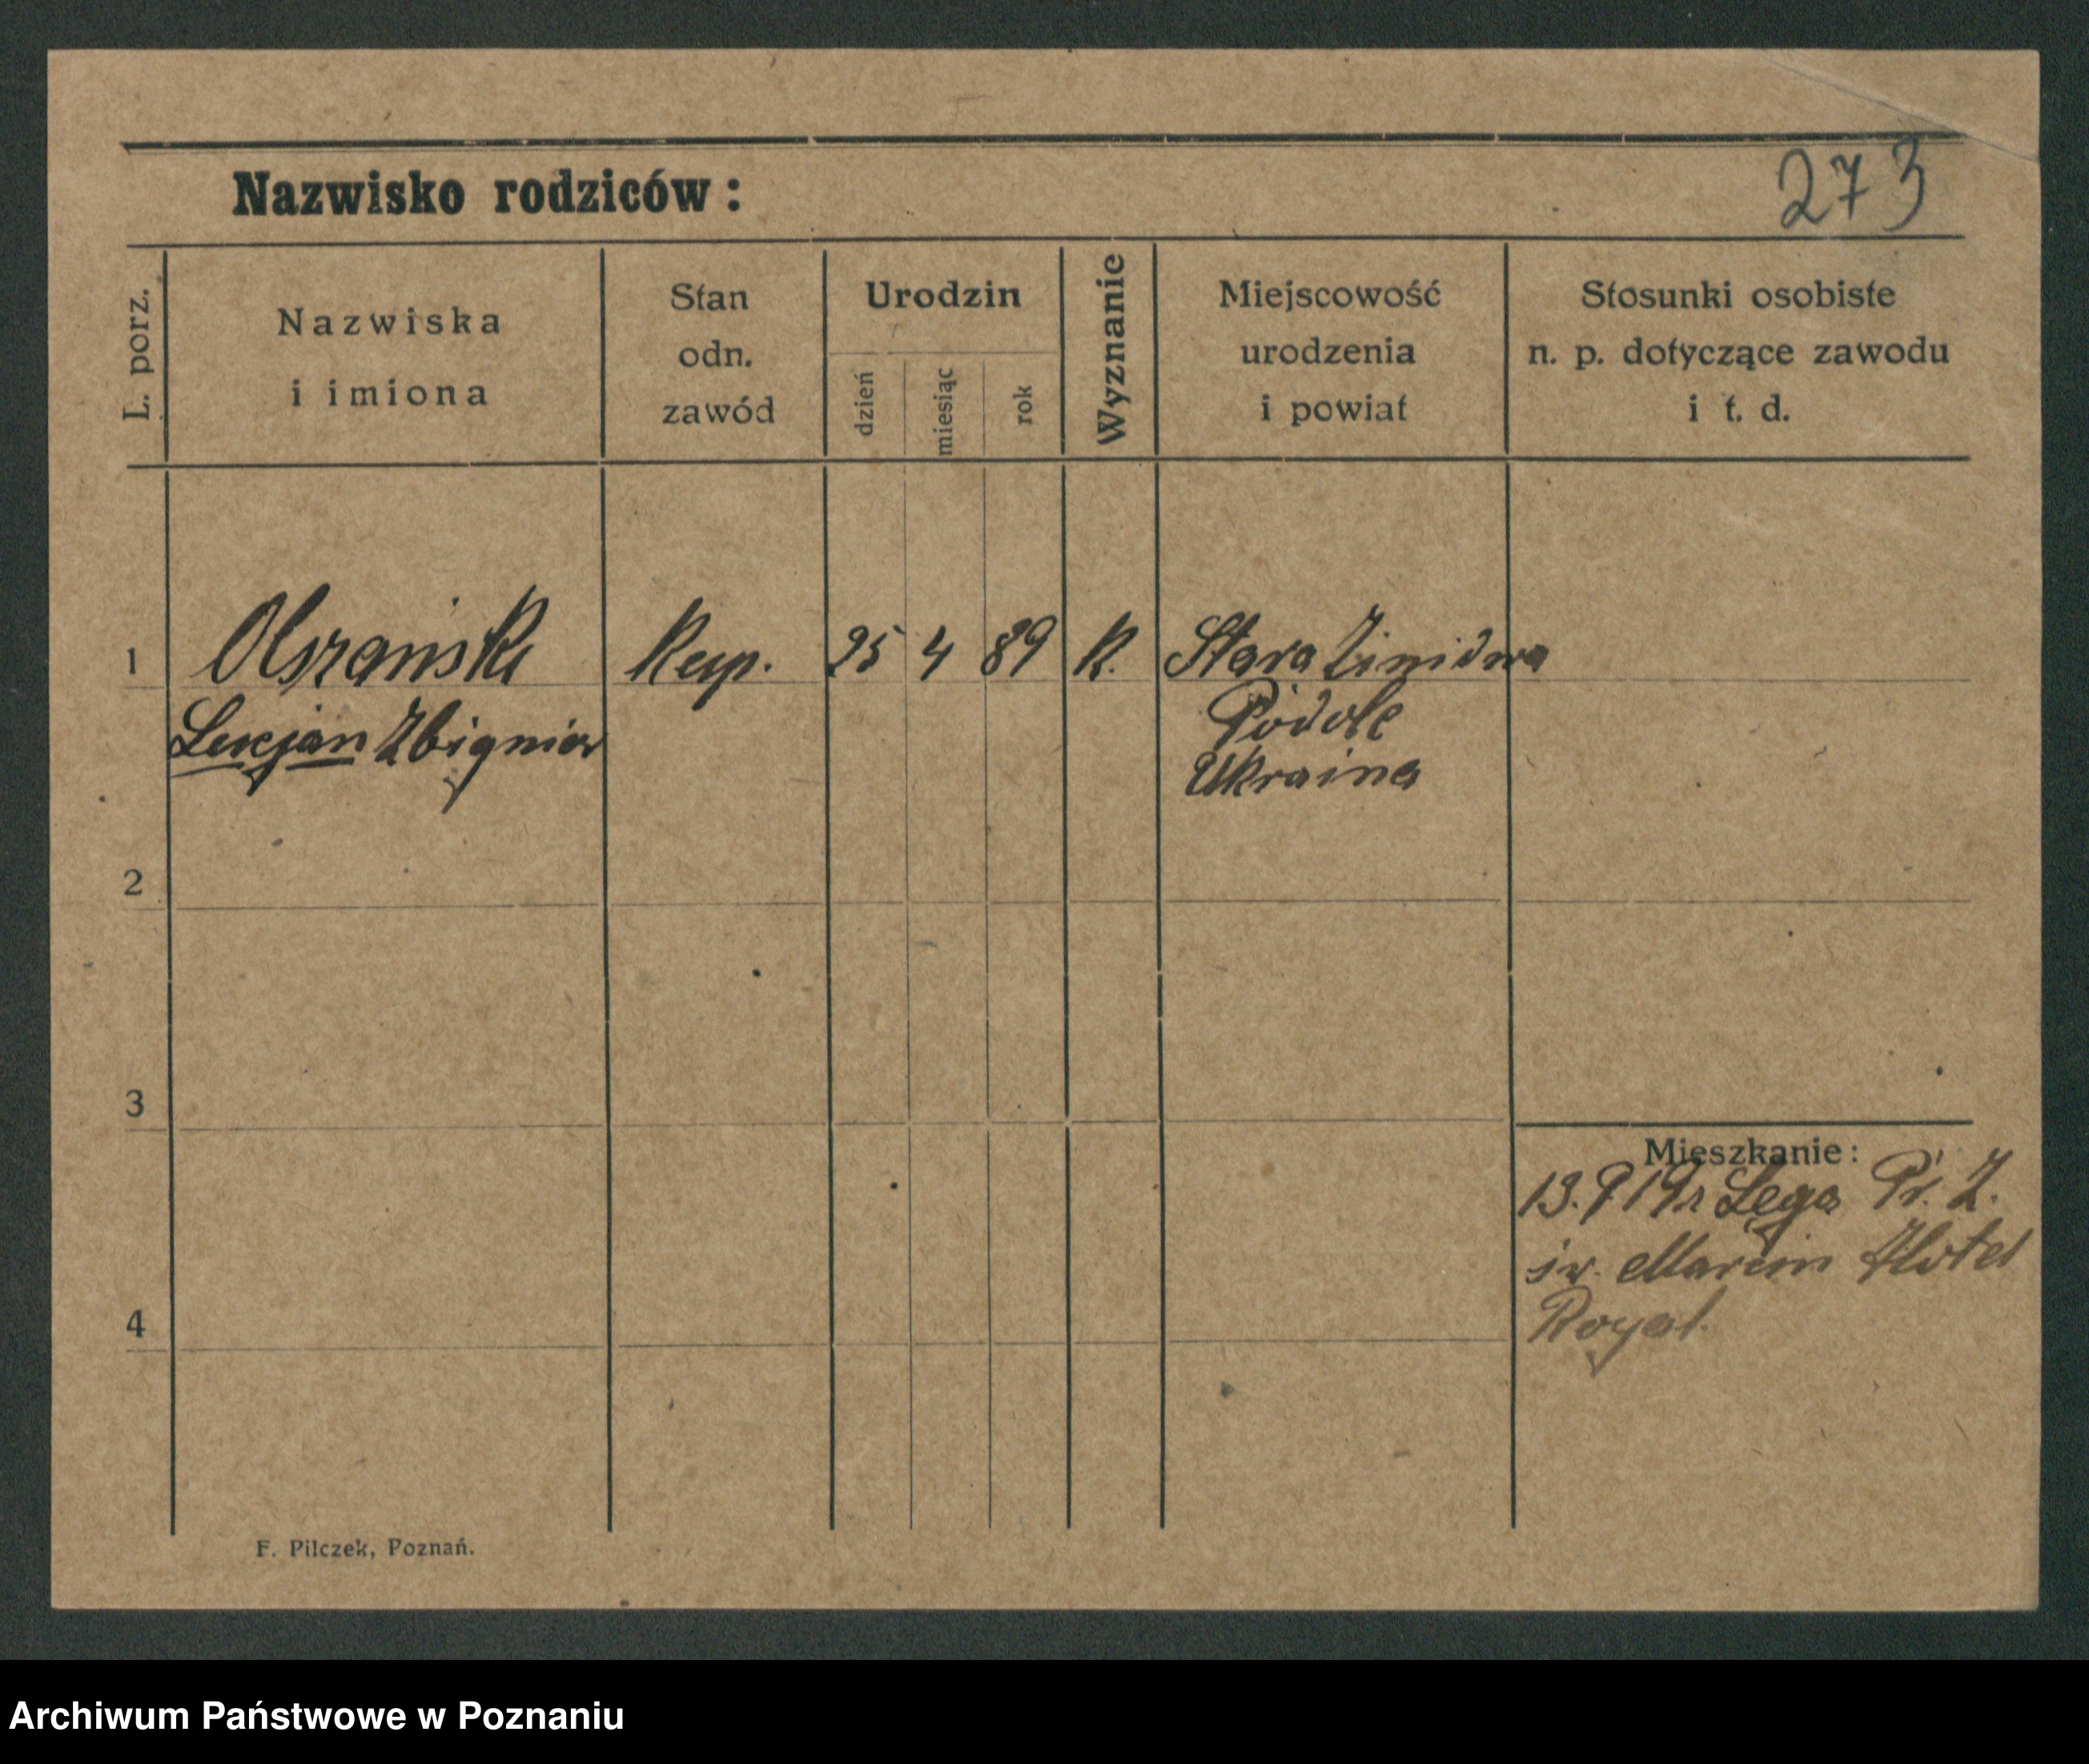 Nazwisko rodziców:
273
L. porz.
Nazwiska
i imiona
Stan
odn.
zawód
Urodzin
dzień
miesiąc
rok
Wyznanie
Miejscowość
urodzenia
i powiat
Stosunki osobiste
n. p. dotyczące zawodu
i t. d.
1
Olszański
Kup.
25
4
89
K.
Stara
Lucjan Zbigniew
Podole
Ukraina
2
3
4
Mieszkanie:
13.9 19r Lega Pr. Z.
św. Marcin Hotel
Royal.
F. Pilczek, Poznań.
Archiwum Państwowe w Poznaniu